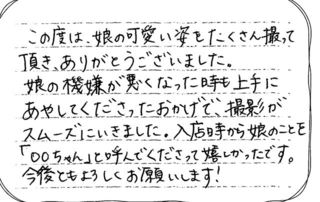 この度は、娘の可愛い姿をたくさん撮って
頂き、ありがとうございました。
娘の機嫌が悪くなった時も上手に
あやしてくださったおかげで、撮影が
スムーズにいきました。入店時から娘のことを
「〇〇ちゃん」と呼んでくださって嬉しかったです。
今後ともよろしくお願いします!